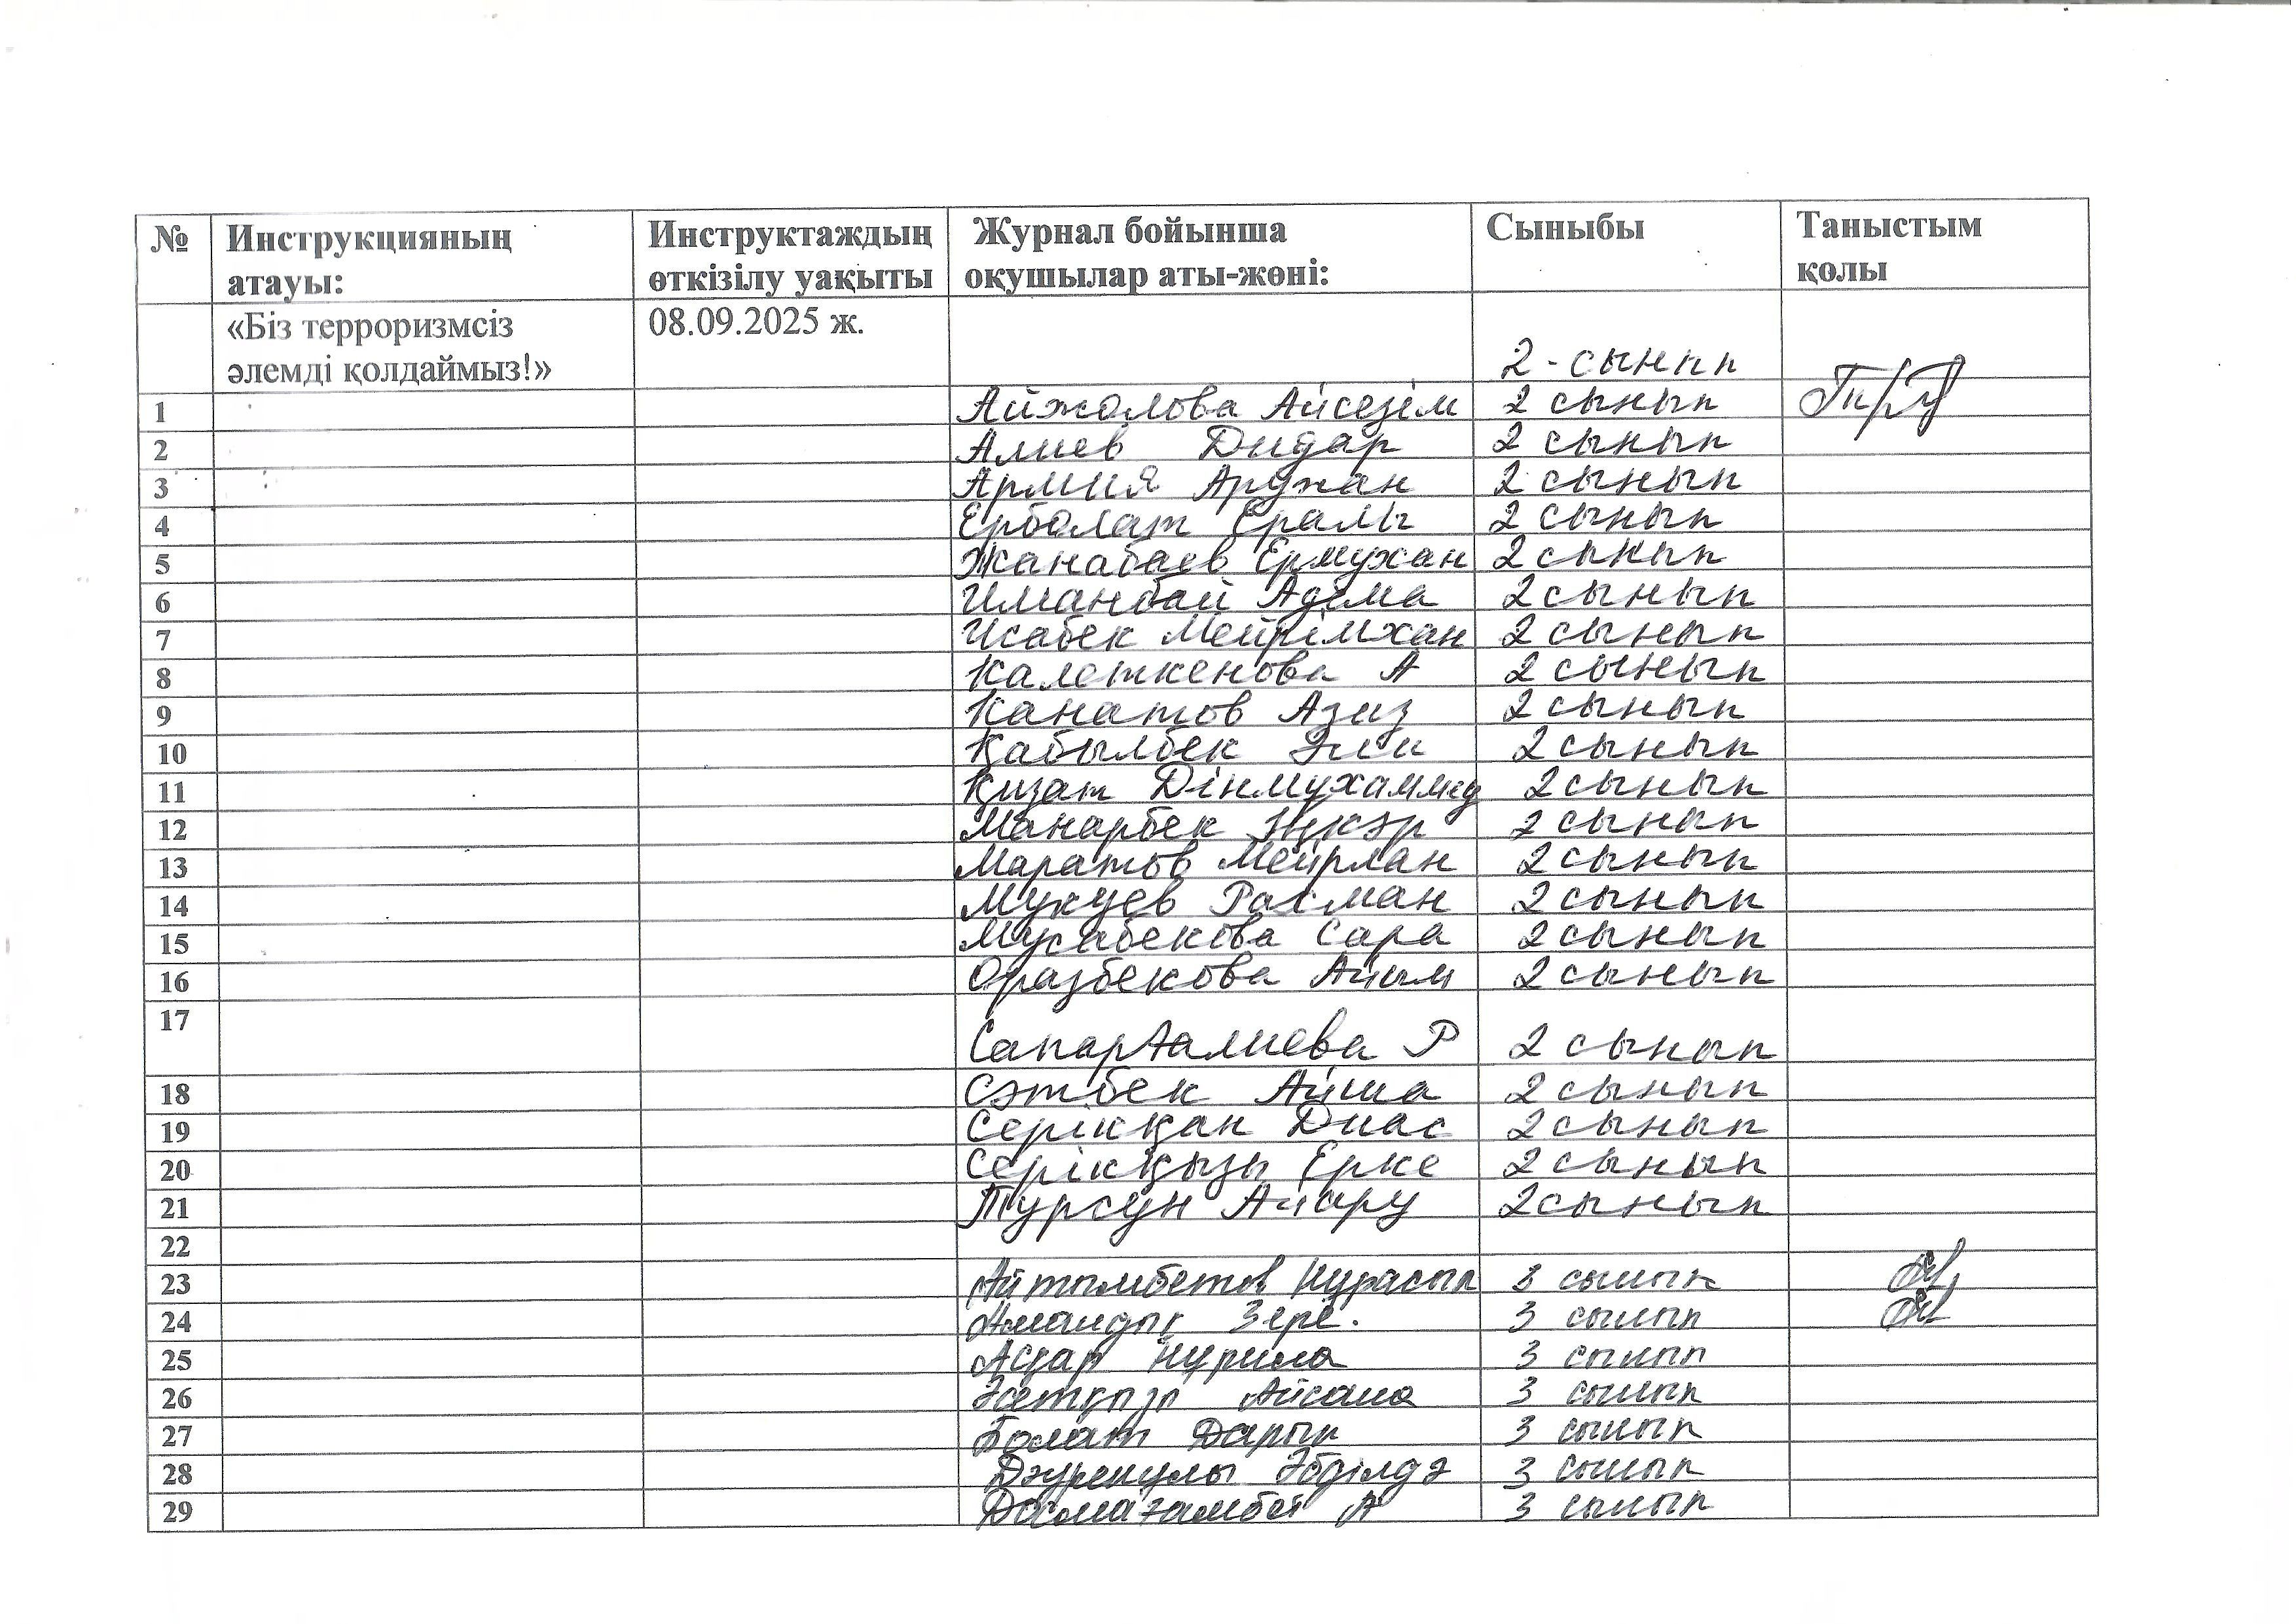 № Инструкцияның атауы: Инструктаждың өткізілу уақыты Журнал бойынша оқушылар аты-жөні: Сыныбы Таныстым қолы
«Біз терроризмсіз әлемді қолдаймыз!» 08.09.2025 ж. 2 - сынып
1 Айжолова Айсезім 2 сынып
2 Алиев Дидар 2 сынып
3 Армия Аружан 2 сынып
4 Ерболат Ералы 2 сынып
5 Жанабаев Ермухан 2 сынып
6 Иманбай Адема 2 сынып
7 Исабек Мейрімхан 2 сынып
8 Калеткенова А 2 сынып
9 Канатов Азиз 2 сынып
10 Қабылбек Әли 2 сынып
11 Қизат Дінмухаммед 2 сынып
12 Манарбек 2 сынып
13 Маратов Мейрлан 2 сынып
14 Мукуев Рахман 2 сынып
15 Мусабекова Сара 2 сынып
16 Оразбекова Айым 2 сынып
17 Сапарғалиева Р 2 сынып
18 Сәтбек Айша 2 сынып
19 Серікқан Диас 2 сынып
20 Серікқызы Ерке 2 сынып
21 Турсун Айару 2 сынып
22
23 Айтымбетов Нурасыл 3 сынып
24 Амандық Зере. 3 сынып
25 Асқар Нурила 3 сынып
26 Әсетқызы Айсана 3 сынып
27 Болат Дарын 3 сынып
28 Дәуренұлы Әбділдә 3 сынып
29 Досмағамбет А 3 сынып